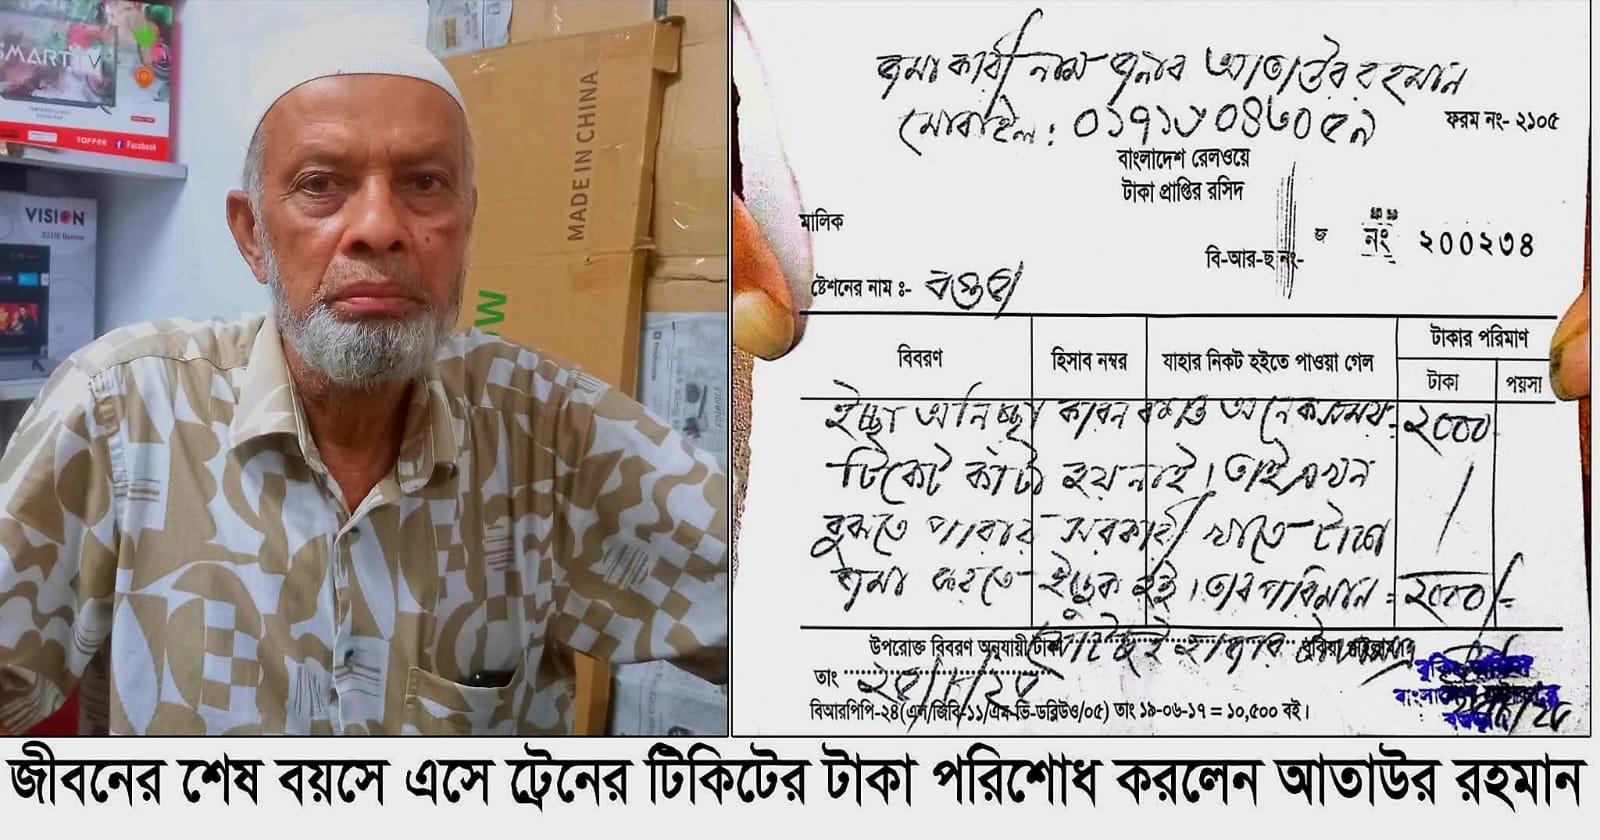 SMART TV
TOFFEE
Facebook
VISION
MADE IN CHINA
জমাকারী নাম জনাব আতাউর রহমান
ফরম নং- ২১০৫
বাংলাদেশ রেলওয়ে
টাকা প্রাপ্তির রসিদ
মালিক
জ নং ২০০২৩৪
বি-আর-ছ নং-
ষ্টেশনের নাম ঃ- বগুড়া
বিবরণ হিসাব নম্বর যাহার নিকট হইতে পাওয়া গেল টাকার পরিমাণ
টাকা পয়সা
ইচ্ছা অনিচ্ছা কারন বশত অনেক সময় ২০০০
টিকেট কাটা হয় নাই। তাই এখন
বুঝতে পারায় সরকারী খাতে টাকা
জমা করতে ইচ্ছুক হই। তার পরিমান = ২০০০/=
উপরোক্ত বিবরণ অনুযায়ী টাকা
তাং
বিআরপিপি-২৪(এল/জিবি-১১/এফ-ডি-ডব্লিউও/০৫) তাং ১৯-০৬-১৭ = ১০,৫০০ বই।
জীবনের শেষ বয়সে এসে ট্রেনের টিকিটের টাকা পরিশোধ করলেন আতাউর রহমান